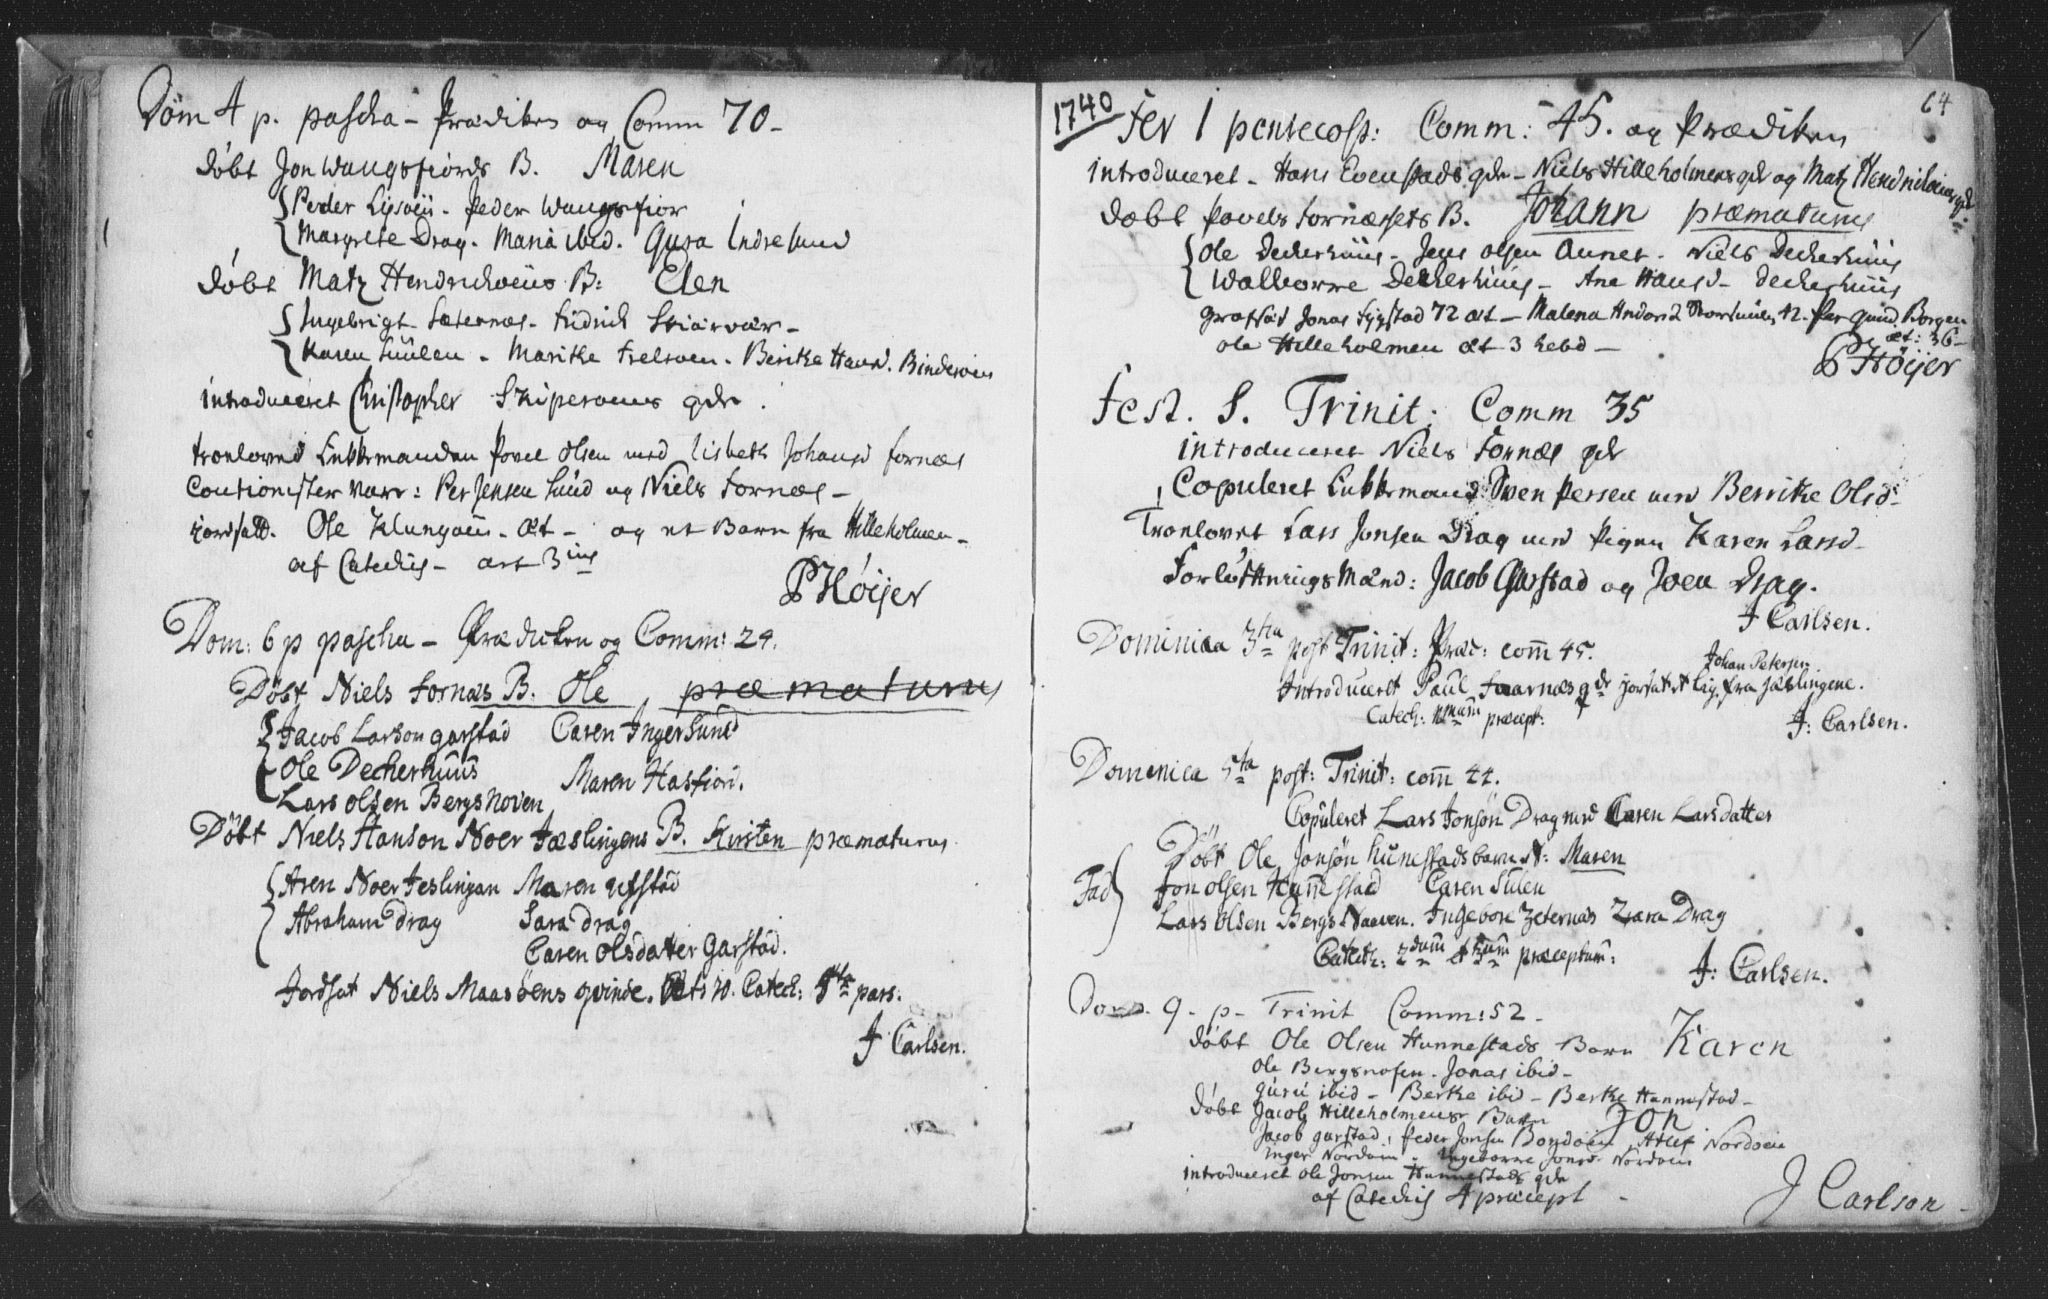 Dom 4 p. pascha – Prædiken og Comm 70 –
døbt Jon Waugsfiords B. Maren
Peder Lysøen - Peder Waugsfior
Margrete Drag. Maria ibid. Gura Indresund
døbt Matz Hendrichøens B: Elen
Ingebrigt Sæternæs - Fridrich Skiærvær –
Karen Suulen - Maritke - Beritke Hansd. Bindøen
introduceret Christopher Skipersøens qde.
troelovet Enkkemanden Povel Olsen med Lisbeth Johansd fornæs
Coutionister var: Per Jensen Sund og Niels Fornæs –
jordfæst. Ole Klungøen - æt – og et Barn fra Hilleholmen –
af Catechis – art 3ius
P Høijer
Dom: 6 p pascha – Prædiken og Comm: 24.
Døbt Niels Fornæs B. Ole præmaturus
Jacob Larson garstad Caren Inger Sund
Ole Deckerhuus
Maren Hasfiord.
Lars olsen Bergsnoven
Døbt Niels Hanson Noer Jæslingens B. Kirsten præmaturus
Aren Noer Jeslingan Maren ufstad
Abraham Drag Sara drag
Caren olsdatter Garstad.
Jordfæt Niels Maasøens qvinde. Æt: 70. Catech: 5ta pars.
J Carlsen.
1740
64
Fer 1 pentecost: Comm: 45. og Prædiken
introduceret - Hans Evenstads qde – Niels Hilleholmens qde og Matz Hendrichøens qde
døbt Povels Fornæssets B. Johann præmaturus
Ole Deckerhuus - Jens olsen Aunet - Niels Deckerhuus
Walborre Deckerhuus – Ane Hansd – Deckerhuus
Jonas 72 æt – Malena Andersd 42. Per Borgen
æt: 36 –
ole Hilleholmen æt 3 hebd –
P Høijer
Fest. S. Trinit: Comm 35
introduceret Niels Fornæs qde
Copuleret Enkkemand Sven Persen med Berritke Olsd –
Troelovet Lars Jonsen Drag med Pigen Karen Larsd –
Forløftnings Mænd: Jacob Garstad og Joen Drag.
J Carlsen.
Dominica 3tia post Trinit: Præd: com 45.
Introduceret Paul Faarnæs qde jorfæstet Johan Petersen lig. fra Jæslingene.
Catech: præcept:
J: Carlsen.
Domenica 5ta post: Trinit: com 44.
Copuleret Lars Jonsøn Drag med Caren Larsdatter
Døbt Ole Jonsøn hunestads barn N: Maren
Fad
Jon olsen Hunnestad Caren Sulen
Lars Olsen Bergsnaaven. Ingebore Zeternæs Zara Drag
Catech: 2dum et 3um præceptum:
J: Carlsen.
Dom. 9 - p – Trinit Comm: 52 –
døbt Ole Olsen Hunnestads Barn Karen
Ole Bergsnofen - Jonas ibid –
Guru ibid – Berke ibid – Berke Hannestad –
døbt Jacob Hilleholmens Barn Jon
Jacob garstad, Peder Jonsen Bondøen Atlef Nordøen
Inger Nordøen - Ingeborre Jonsd Nordøen
introduceret Ole Jonsen Hunnestads qde
af Catechis 4 præcept –
J Carlson